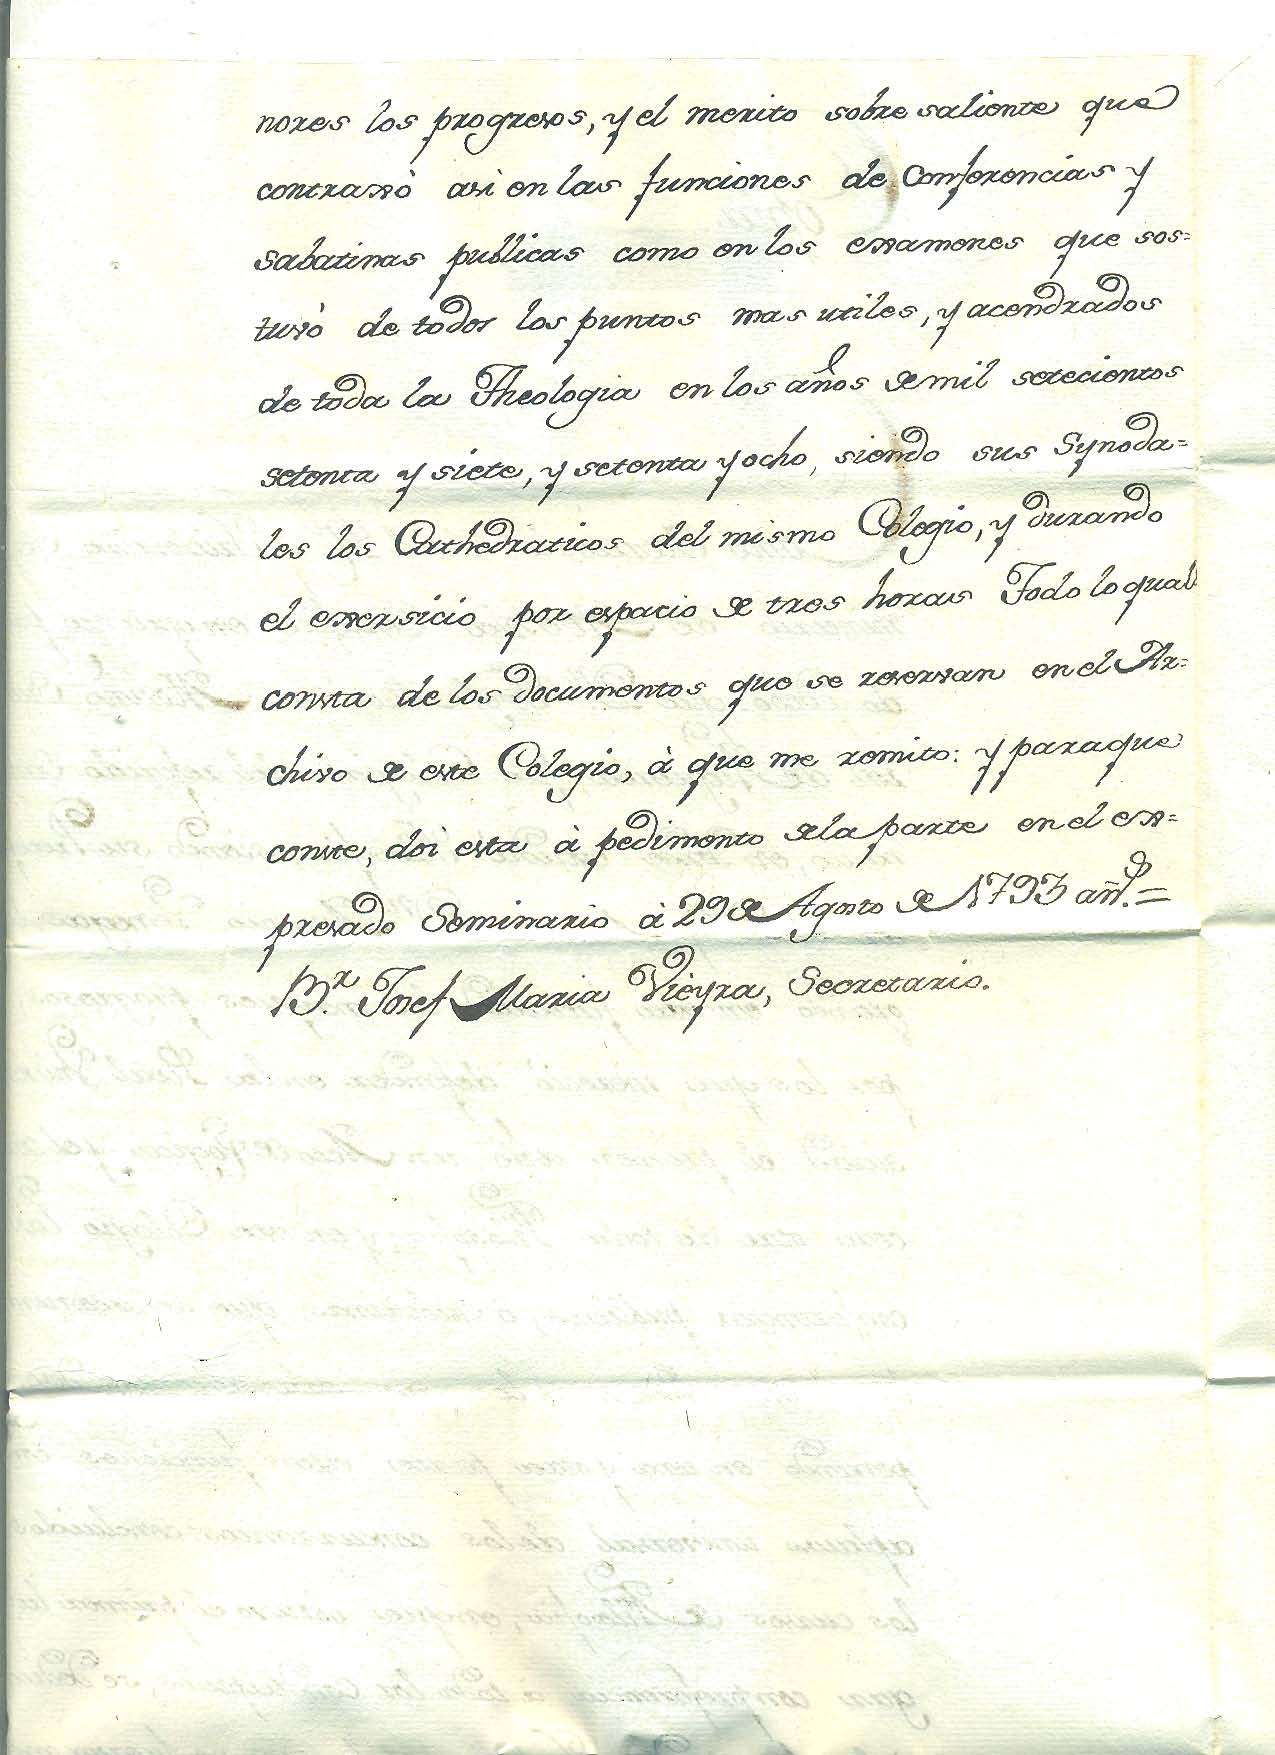 nores los progresos, y el merito sobre saliente que
contraxò asi en las funciones de Conferencias y
Sabatinas publicas como en los examenes que sos=
tuvò de todos los puntos mas utiles, y acendrados
de toda la Theologia en los años de mil setecientos
setenta y siete, y setenta y ocho, siendo sus Synoda=
les los Cathedraticos del mismo Colegio, y durando
el exersicio por espacio de tres horas Todo lo qual
consta de los documentos que se reservan en el Ar=
chivo de este Colegio, à que me remito: y paraque
conste, doi esta à pedimento de la parte en el ex=
presado Seminario à 29 de Agosto de 1793 añ.s =
B.r Josef Maria Vieyra, Secretario.